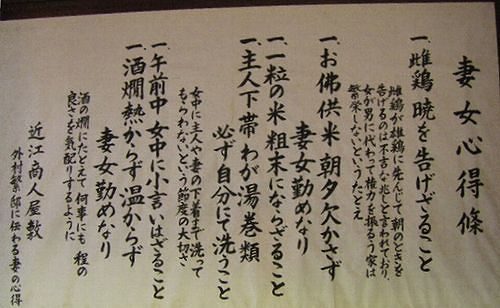 妻女心得條
一、雌鶏 暁を告げざること
雌鶏が雄鶏に先んじて朝のときを
告げるのは不吉な兆しと言われており、
女が男に代わって権力を振るう家は
繁栄しないというたとえ
一、お佛供米朝夕欠かさず
妻女勤めなり
一、一粒の米粗末にならざること
一、主人下帯わが湯巻類
必ず自分にて洗うこと
女中に主人や妻の下着まで洗って
もらわないという節度の大切さ
一、午前中女中に小言いはざること
一、酒燗熱からず温からず
妻女勤めなり
酒の燗にたとえて何事にも程の
良さを気配りするように
近江商人屋敷
外村繁邸に伝わる妻の心得